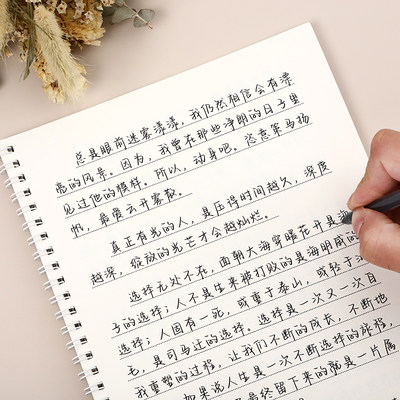 总是眼前迷雾漾漾，我仍然相信会有漂
亮的风景。因为，我曾在那些净朗的日子里
见过他的模样。所以，动身吧。恣意策马扬
书，最爱云开雾散。
真正有光的人，是压得时间越久，深度
越深，绽放的光芒才会越灿烂。
选择无处不在，面朝大海穿暖花开是海
子的选择；人不是生来被打败的是海明威的
选择；人固有一死，或重于泰山，或轻于
毛，是司马迁的选择。选择是一次又一次自
我重塑的过程，让我们不断的成长，不断地
如果说人生是一次不断选择的旅程，
最终留下来的就是一片属